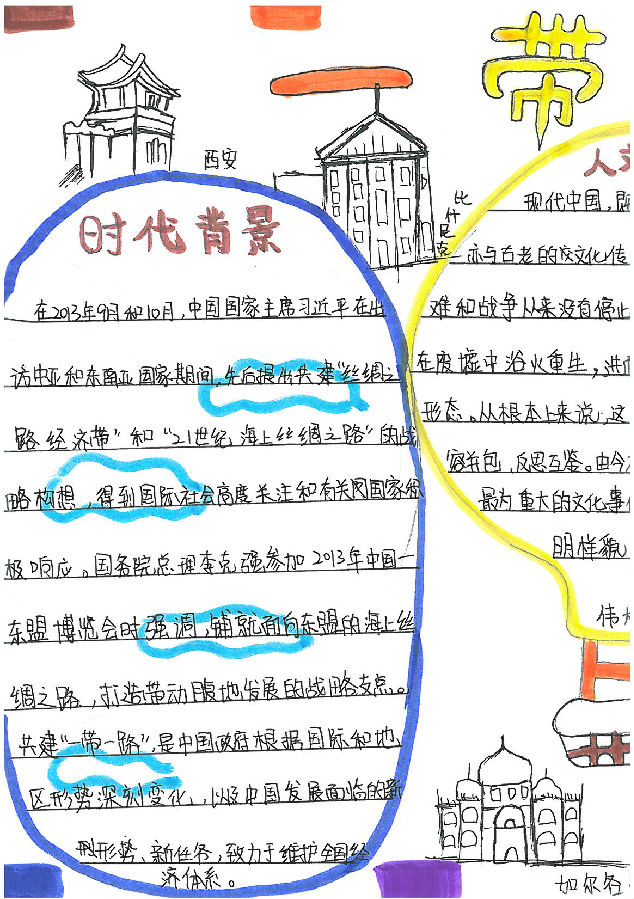 带
西安
比什凯克
时代背景
在2013年9月和10月,中国国家主席习近平在出
访中亚和东南亚国家期间,先后提出共建“丝绸之
路经济带”和“21世纪海上丝绸之路”的战
略构想,得到国际社会高度关注和有关国国家积
极响应。国务院总理李克强参加2013年中国一
东盟博览会时强调,铺就面向东盟的海上丝
绸之路,打造带动腹地发展的战略支点。
共建“一带一路”,是中国政府根据国际和地
区形势深刻变化,以及中国发展面临的新
型形势、新任务,致力于维护全国经
济体系。
人文
现代中国,既
亦与古老的汉文化传
难和战争从来没有停止
在废墟中浴火重生,洪
形态。从根本上来说,这
容并包,反思互鉴。由今
最为重大的文化事
明样貌
伟大
如尔各